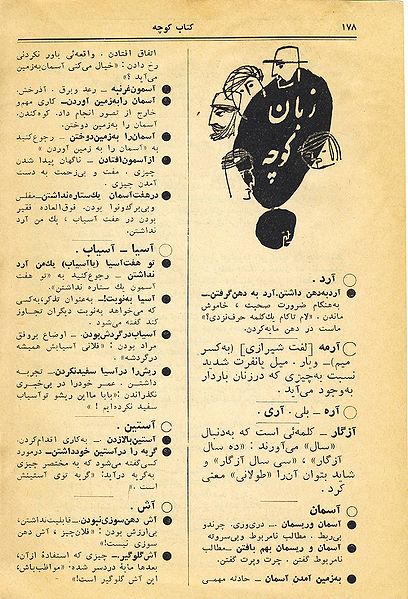 ۱۷۸
کتاب کوچه
زبان
کوچه
آرد .
آردبه‌دهن داشتن. آرد به دهن گرفتن ــ
به‌هنگام ضرورت صحبت ، خاموش
ماندن . «لام تاکام یك‌کلمه حرف‌نزدی؟»
ماست در دهن مایه‌کردن.
آرمه [لفت شیرازی] (به‌کسر
میم) ــ ویار . میل یانفرت شدید
نسبت به‌چیزی که درزنان باردار
به‌وجود می‌آید .
آره ــ بلی . آری .
آزگار ــ کلمه‌ئی است که به‌دنبال
«سال» می‌آورند : «ده سال
آزگار» ، «سی سال آزگار» و
شاید بتوان آن‌را «طولانی» معنی
کرد .
آسمان
آسمان وریسمان ــ دری‌وری. چرندو
بی‌ربط . مطالب نامربوط وبی‌سروته
آسمان و ریسمان بهم بافتن ــ مطالب
نامربوط گفتن . چرت وپرت گفتن.
به‌زمین آمدن آسمان ــ حادثه مهمی
اتفاق افتادن . واقعه‌ئی باور نکردنی
رخ دادن : «خیال می‌کنی آسمان‌به‌زمین
می‌آید ؟»
آسمون‌غرنبه ــ رعد وبرق . آذرخش.
آسمان رابه‌زمین آوردن ــ کاری مهم‌و
خارج از تصور انجام داد. کوه‌کندن.
آسمان را به‌زمین دوختن.
آسمان‌را به‌زمین‌دوختن ــ رجوع‌کنید
به «آسمان را به زمین آوردن »
ازآسمون‌افتادن ــ ناگهان پیدا شدن
چیزی . مفت و بی‌زحمت به دست
آمدن چیزی .
درهفت‌آسمان یك‌ستاره‌نداشتن ــ مفلس
وبی‌برگ‌ونوا بودن. فوق‌العاده فقیر
بودن در هفت آسیاب ، یك من آرد
نداشتن.
آسیا ــ آسیاب .
تو هفت‌آسیا (یاآسیاب) یك‌من آرد
نداشتن ــ رجوع‌کنید به «تو هفت
آسمون یك ستاره نداشتن»
آسیا به‌نوبت! ــ به‌عنوان تذکر، به‌کسی
که می‌خواهد به‌نوبت دیگران تجاوز
کند گفته می‌شود .
آسیاب‌درگردش‌بودن ــ اوضاع بروفق
مراد بودن : «فلانی آسیابش همیشه
درگردشه» .
ریش‌را درآسیا سفیدنکردن ــ تجربه
داشتن . عمر خودرا در بی‌خبری
نگذراندن : «بابا مااین ریشو توآسیاب
سفید نکرده‌ایم ! »
آستین .
آستین‌بالازدن ــ به‌کاری اقدام‌کردن.
گربه را درآستین خودداشتن ــ درمورد
کسی‌گفته می‌شود که به مختصر چیزی
به‌گریه درآید: «گربه توی آستینش
است .»
آش .
آش دهن‌سوزی‌نبودن ــ قابلیت‌نداشتن،
بی‌ارزش بودن : «فلان‌چیز ، آش دهن
سوزی نیست!»
آش‌گلوگیر ــ چیزی که استفاده‌ازآن،
بعدها مایهٔ دردسر شده: «مواظب‌باش،
این آش گلوگیر است!»